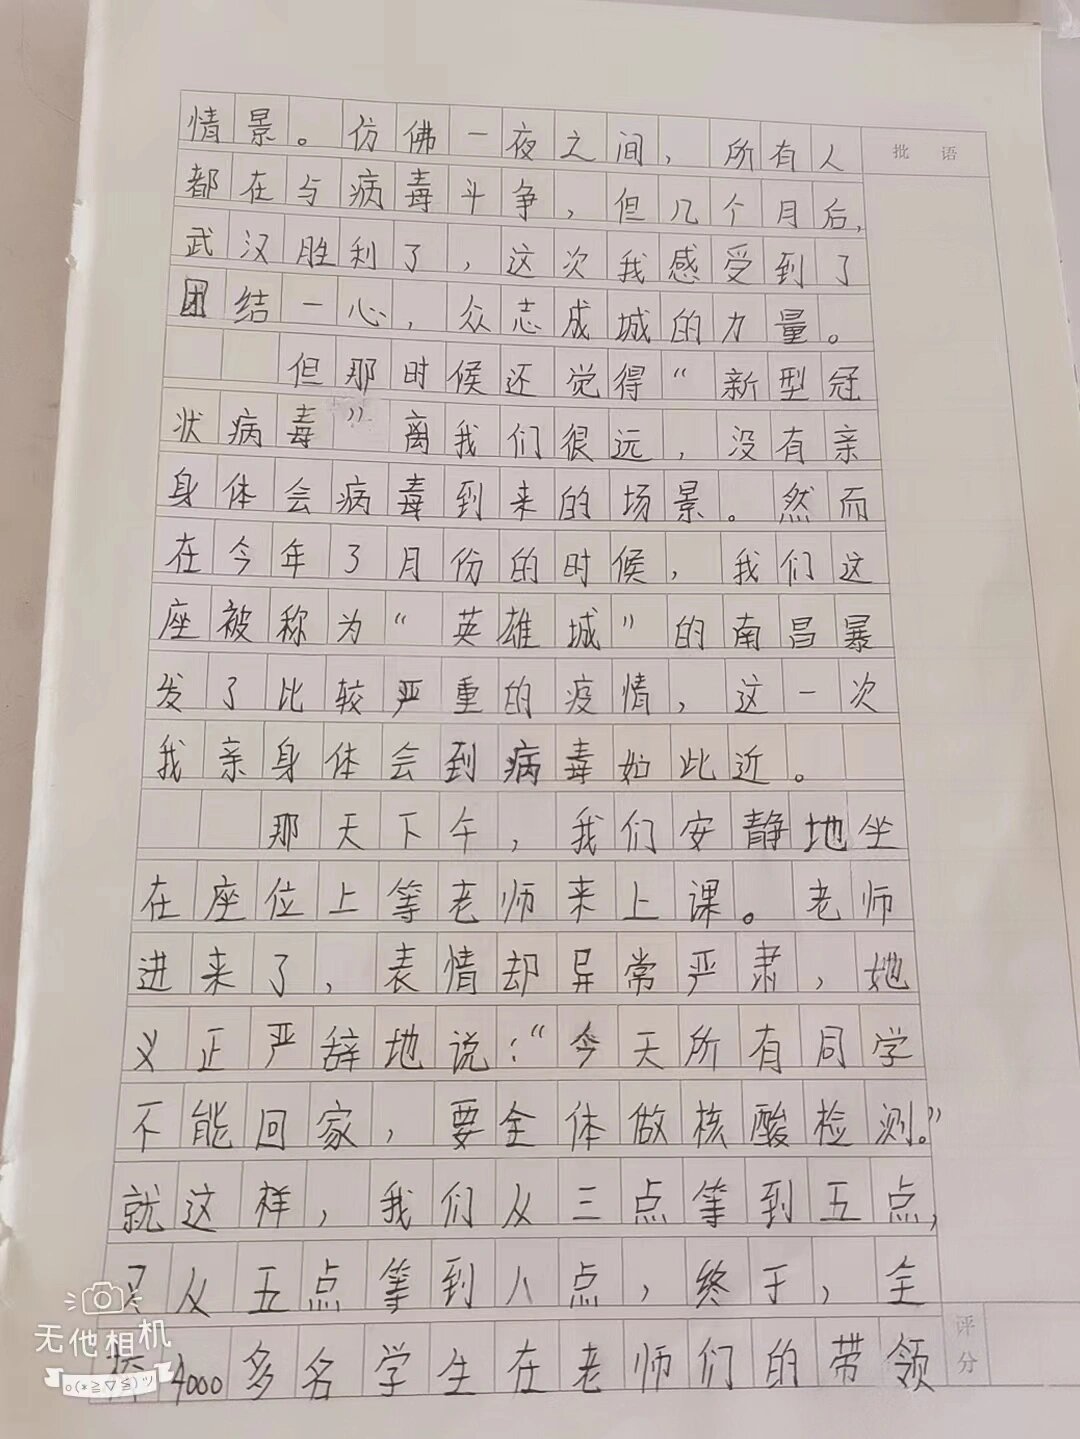 情景。仿佛一夜之间，所有人
都在与病毒斗争，但几个月后，
武汉胜利了，这次我感受到了
团结一心，众志成城的力量。
但那时候还觉得“新型冠
状病毒”离我们很远，没有亲
身体会病毒到来的场景。然而
在今年3月份的时候，我们这
座被称为“英雄城”的南昌暴
发了比较严重的疫情，这一次
我亲身体会到病毒如此近。
那天下午，我们安静地坐
在座位上等老师来上课。老师
进来了，表情却异常严肃，她
义正严辞地说：“今天所有同学
不能回家，要全体做核酸检测。”
就这样，我们从三点等到五点，
又从五点等到八点，终于，全
校4000多名学生在老师们的带领
批语
评分
无他相机
o(*≧▽≦)ツ